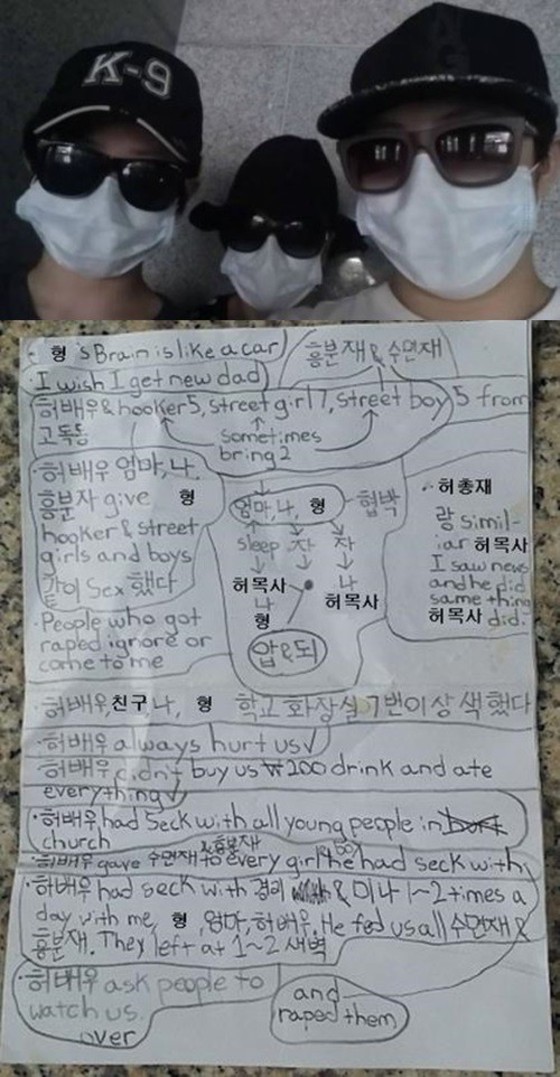 K-9
형's Brain is like a car
I wish I get new dad
흥분재 & 수면재
허배우 & hooker 5, street girl 7, street boy 5 from
고독동
sometimes
bring 2
허배우 엄마, 나,
흥분자 give 형
hooker & street
girls and boys
같이 Sex 했다
People who got
raped ignore or
come to me
엄마, 나, 형
협박
sleep 자 자
허목사 나
나 허목사
형
허총재
랑 simil-
iar 허목사
I saw news
and he did
same thing
허목사 did.
허배우, 친구, 나, 형 학교 화장실 7번이상 색했다
허배우 always hurt us
허배우 didn't buy us ₩200 drink and ate
everything
허배우 had Seck with all young people in
church
& 흥분재
허배우 gave 수면재 to every girl he had seck with
허배우 had seck with 경리 & 미나 1~2 times a
day with me, 형, 엄마, 허배우. He fed us all 수면재 &
흥분재. They left at 1~2 새벽
허배우 ask people to
watch us.
over
and
raped them